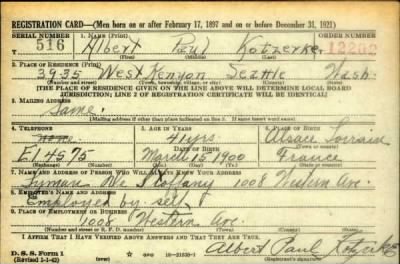 REGISTRATION CARD—(Men born on or after February 17, 1897 and on or before December 31, 1921)
SERIAL NUMBER 1. NAME (Print) ORDER NUMBER
T 516 Albert Paul Kotzerke 12202
(First) (Middle) (Last)
2. PLACE OF RESIDENCE (Print)
3935 West Kenyon Seattle Wash.
(Number and street) (Town, township, village, or city) (County) (State)
[THE PLACE OF RESIDENCE GIVEN ON THE LINE ABOVE WILL DETERMINE LOCAL BOARD
JURISDICTION; LINE 2 OF REGISTRATION CERTIFICATE WILL BE IDENTICAL]
3. MAILING ADDRESS
Same.
[Mailing address if other than place indicated on line 2. If same, insert word same]
4. TELEPHONE 5. AGE IN YEARS 6. PLACE OF BIRTH
41 yrs. Alsace Lorrain
DATE OF BIRTH
El 4575 March 15 1900 France
(Mo.) (Day) (Yr.) (State or country)
7. NAME AND ADDRESS OF PERSON WHO WILL ALWAYS KNOW YOUR ADDRESS
Lyman 1008 Western Ave.
8. EMPLOYER'S NAME AND ADDRESS
Employed by self
9. PLACE OF EMPLOYMENT OR BUSINESS
1008 Western Ave.
(Number and street or R. F. D. number) (Town) (County) (State)
I AFFIRM THAT I HAVE VERIFIED ABOVE ANSWERS AND THAT THEY ARE TRUE.
D. S. S. Form 1
(Revised 1-1-42) (over) Albert Paul Kotzerke